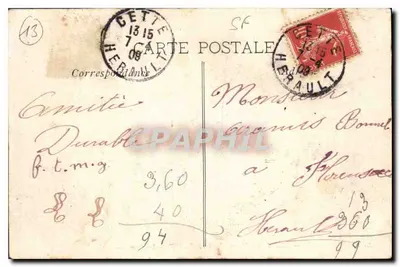 13
CETTE
13 15
7
09
HERAULT
SF
CARTE POSTALE
Correspondance
CETTE
HERAULT
Amitiée
Durable
f. t. m. g
3,60
40
94
Monsieur
Bonnet
a Florensac
Herault
13
360
99